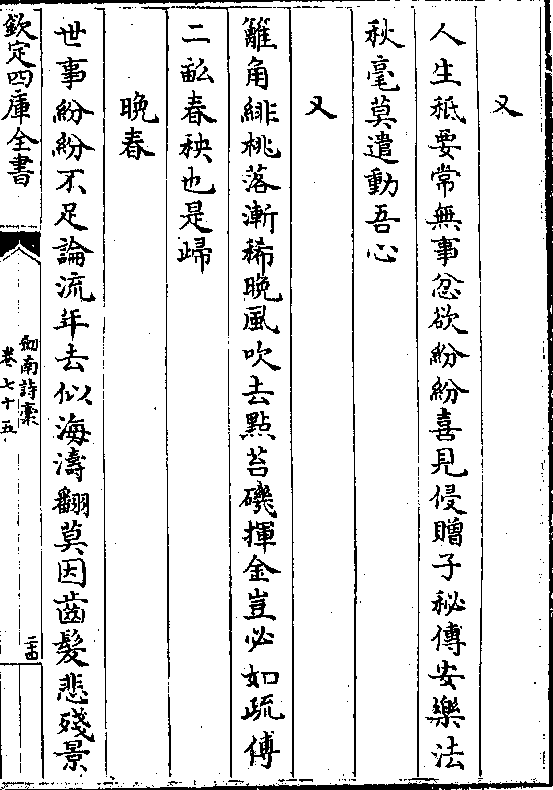 又
人生秖要常無事忿欲紛紛喜見侵贈子秘傳安樂法
秋毫莫遣動吾心
又
籬角緋桃落漸稀晚風吹去㸃苔磯揮金豈必如疏傅
二畝春秧也是歸
晚春
世事紛紛不足論流年去似海濤翻莫因齒髮悲殘景
欽定四庫全書
劒南詩稾
卷七十五
二十四